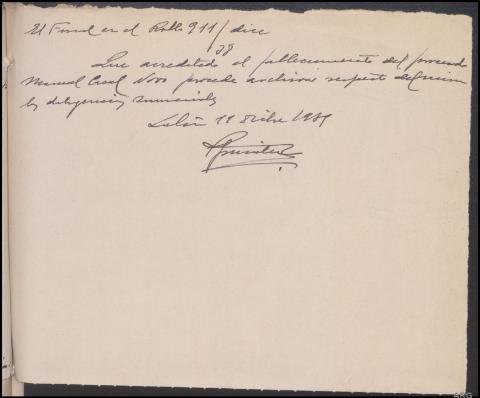 El Fiscal en el Rollo 911/39 dice
Que acreditado el fallecimiento del procesado
Manuel Novo procede archivar respecto del mismo
las diligencias sumariales
18 Dicbre 1939
ARG